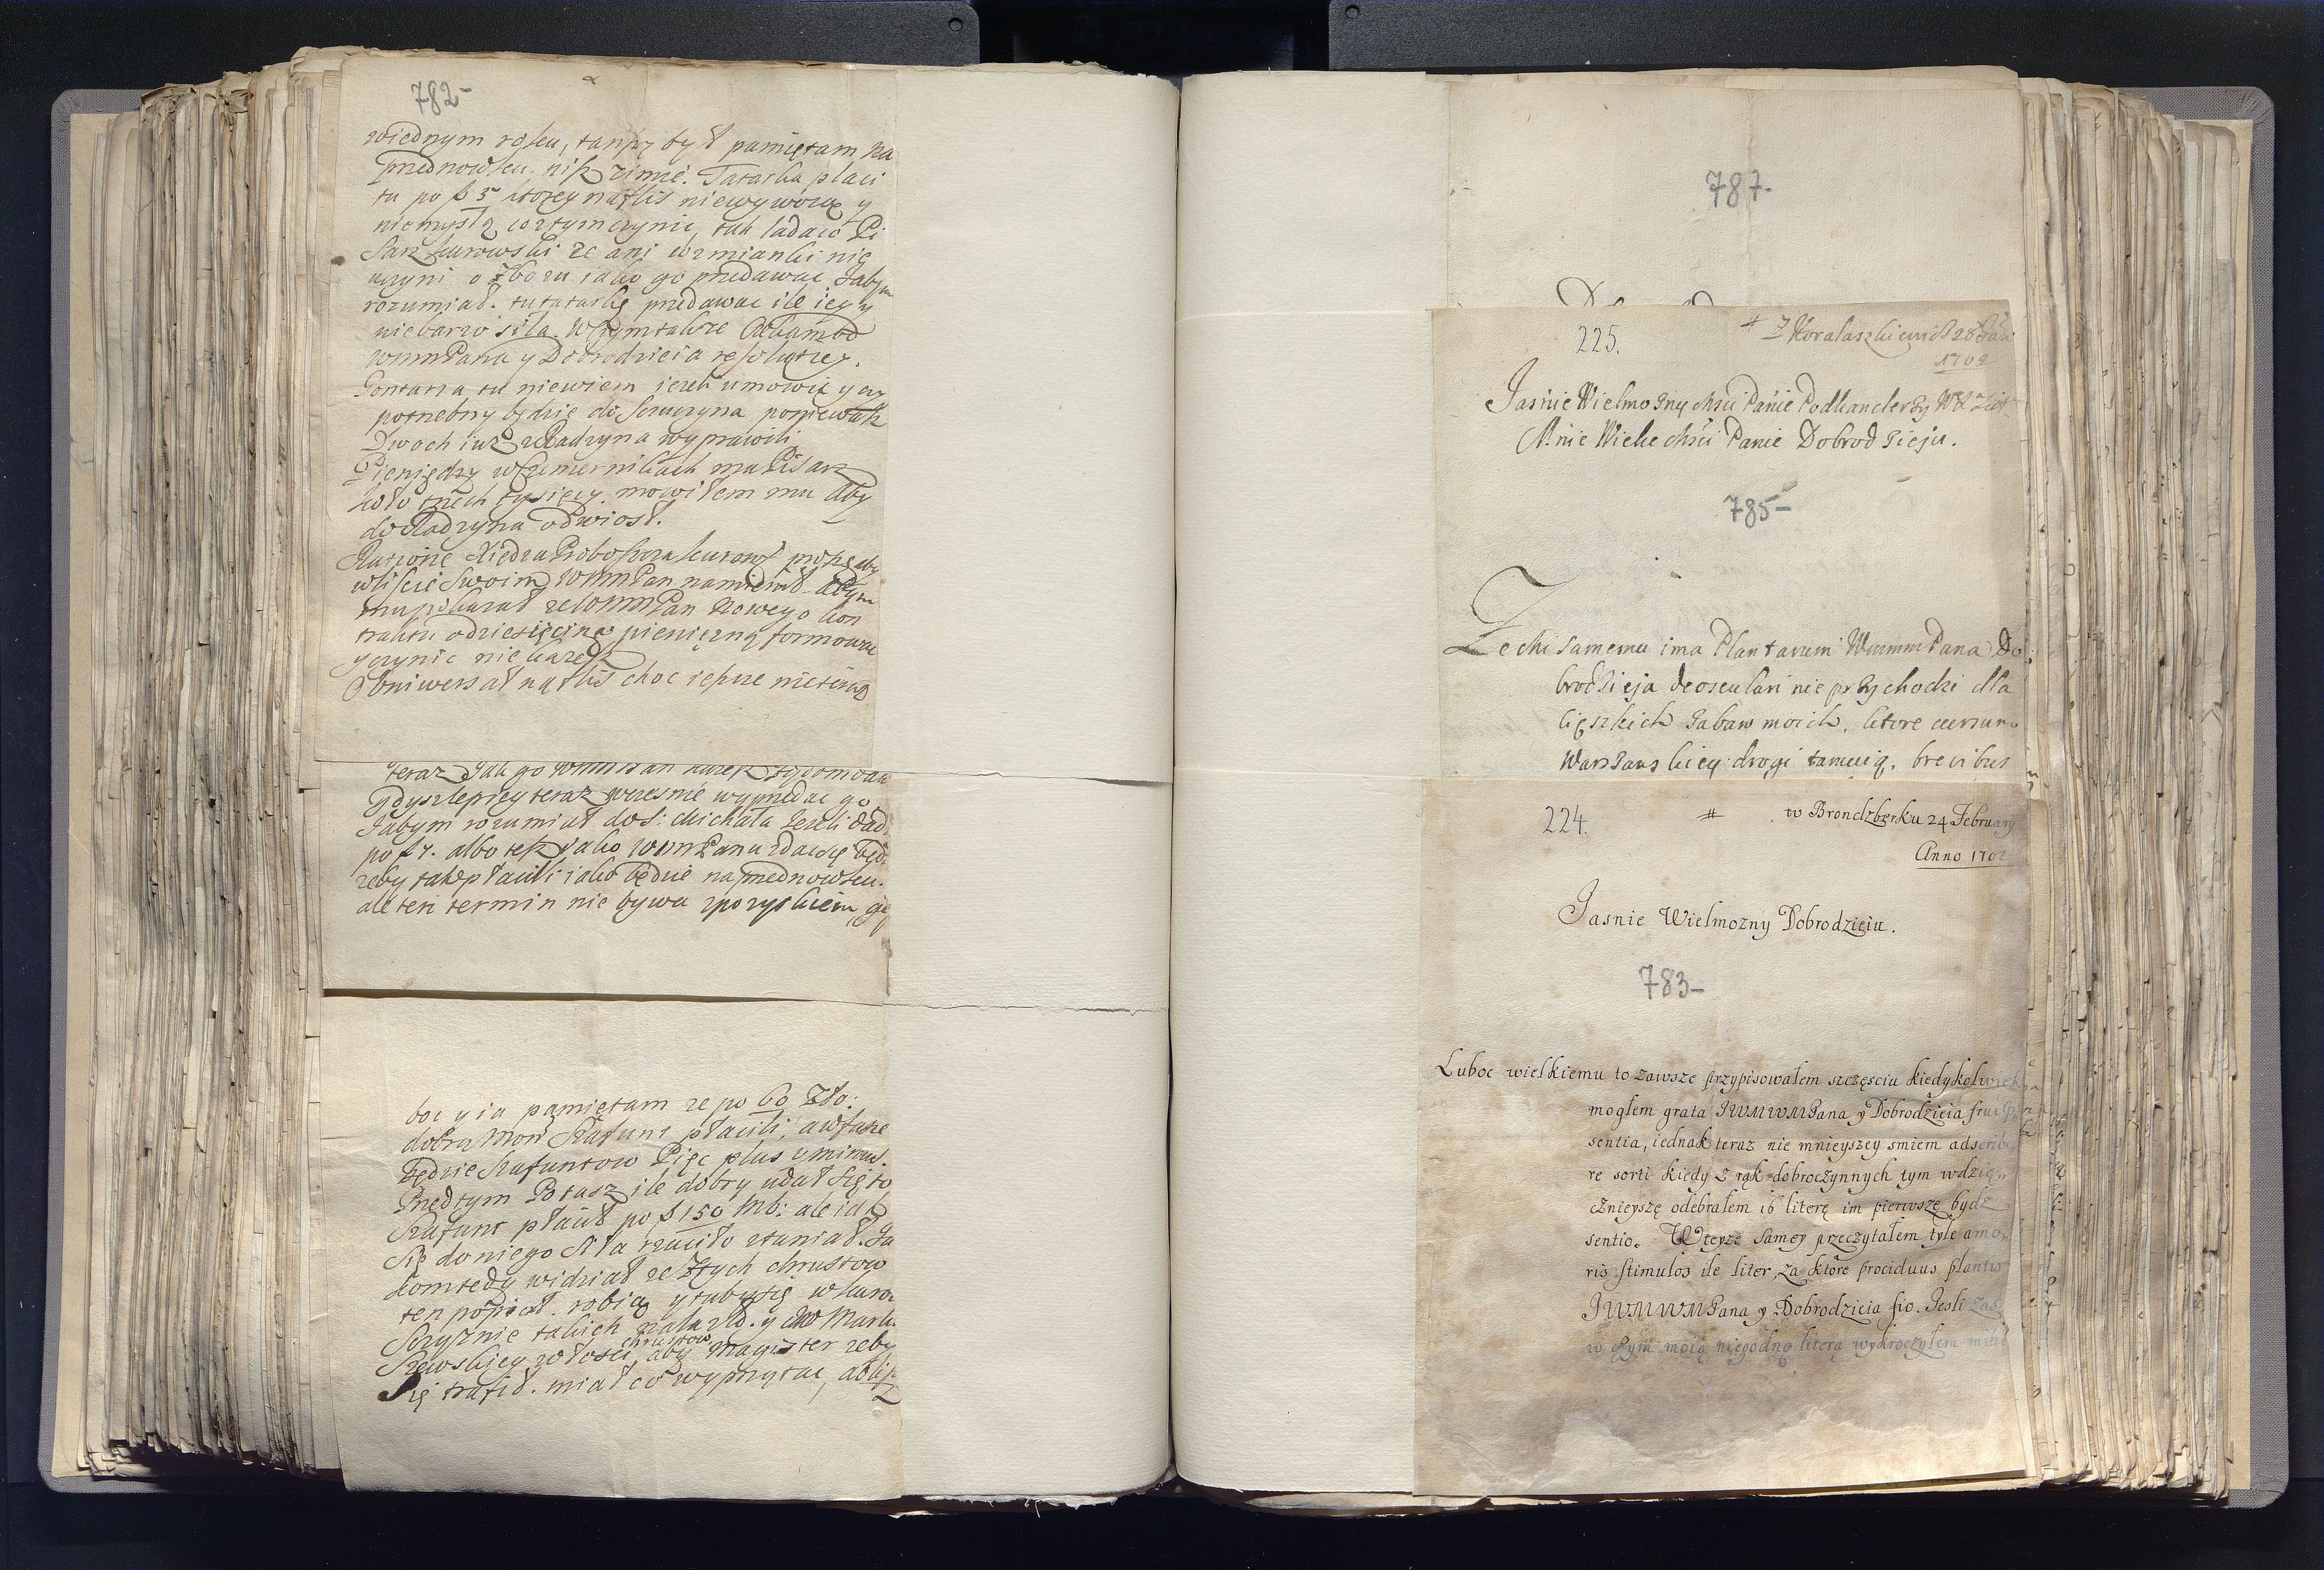 782-
wiednym roku, tanszy był pamiętam na
przednowku, nisz zimie. Tatarka płaci
tu po f 5 ktorey na flis niewywozą y
niemyslą co z tym czynic, tak ladaco Pi
sarz kurowski ze ani wzmianki nie
uczyni o zbozu iako go przedawac Jabym
rozumiał. tu tatarkę przedawac ile iey y
niebarzo siła. W tym takze
WMMPana y Dobrodzieia resolutiey.
Gontarza tu niewiem iezeli umowią y czy
potrzebny będzie do poniewasz
Dwoch iuz z Radzyna wyprawili
Pieniędzy w Czemernikach ma Pisarz
koło trzech tysięcy. mowiłem mu aby
do Radzyna odwiosł.
Ratione Xiedza Proboszcza kurows proszę aby
w liscie swoim WMMPan namienił abym
mu pokazał ze WMMPan Nowego kon
traktu o dziesięcinę pienięzną formowac
y czynic nie kazesz
Obuniwersał na flis choc iescze
teraz Jak go WMMPan kazesz
gdysz lepiey teraz wczesnie wyprzedac go
Jabym rozumiał do S: Michała Jezeli dad
po f 7. albo tesz iako WMMPanu zdac się będz
zeby tak płacili iako będzie na przednowku.
ale ten termin nie bywa z pozyskiem, g
boc y ia pamiętam ze po 60 Zło:
dobrą Szafunt płacili, a w fasie
będzie Szafuntow Pięc plus minus.
Przedtym Potasz ile dobry udał się to
Szafunt płacił po f 150 mb: ale iak
się do niego siła rzuciło staniał. Ja
komtedy widział ze z tych chrustow
ten popioł robią y rabią się w kuro
Szczysnie takich
chrustow
się trafił. miał co wyprzątac,
787-
225.
# Z 28
1702
Jasnie Wielmozny Msci Panie Podkanclerzy WX Lit
Mnie Wielce Msci Panie Dobrodzieju.
785-
Ze mi samemu ima Plantarum WmmmPana Do
brodzieja deosculari nie przychodzi dla
cięszkich Zabaw moich, ktore cursum
Warszawskiey drogi tamuią, brevibus
224. # w Brondzberku 24 February
Anno 1702
Jasnie Wielmozny Dobrodzieiu.
783-
Luboc wielkiemu to zawsze przypisowałem szczęsciu kiedykolwiek
mogłem grata JWMWMPana y Dobrodzieia frui præ
sentia, iednak teraz nie mnieyszey smiem adscribe
re sorti kiedy z rąk dobroczynnych tym wdzię„
cznieyszę odebrałem ib literę im pierwszę bydz
sentio. W teyze samey przeczytałem tyle amo„
ris stimulos ile liter, za ktore prociduus plantis
JWMWMPana y Dobrodzieia fio. Jesli zas
w czym moią niegodną literą wykroczyłem